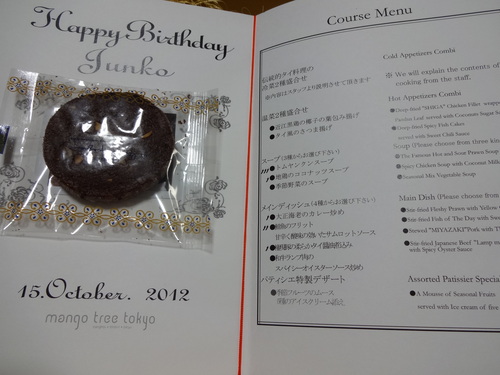 Happy Birthday
Junko
15. October. 2012
mango tree tokyo
Course Menu
伝統的タイ料理の
前菜2種盛合せ
温菜2種盛合せ
●タイ風のさつま揚げ
スープ(3種からお選び下さい)
●トムヤンクンスープ
●鶏肉のココナッツスープ
●季節野菜のスープ
メインディッシュ(4種からお選び下さい)
●大正海老のカレー炒め
●鮮魚のフリット
甘辛く酸味の効いたサムロットソース
●和牛ランプ肉の
スパイシーオイスターソース炒め
パティシエ特製デザート
●季節フルーツのムース
Cold Appetizers Combi
※ We will explain the contents of
cooking from the staff.
Hot Appetizers Combi
●Deep fried "SHIGA" Chicken Fillet
Pandan Leaf served with Coconuts Sugar
●Deep fried Spicy Fish Cakes
served with Sweet Chili Sauce
Soup (Please choose from three
●The Famous Hot and Sour Prawn Soup
●Spicy Chicken Soup with Coconut Milk
●Seasonal Mix Vegetable Soup
Main Dish (Please choose from
●Stir fried Fleshy Prawn with Yellow
●Stir fried Fish of The Day with
●Stewed "MIYAZAKI" Pork with
●Stir fried Japanese Beef
with Spicy Oyster Sauce
Assorted Patissier Specia
●A Mousse of Seasonal Fruits
served with Ice cream of five